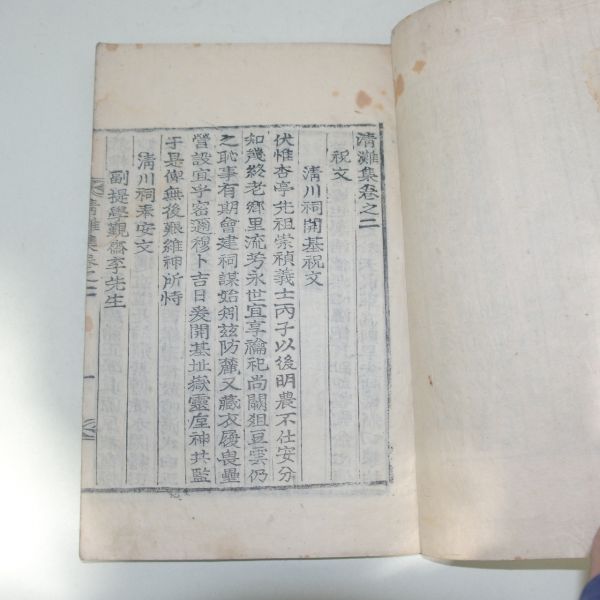 清灘集卷之二
祝文
清川祠開基祝文
伏惟杏亭先祖崇禎義士丙子以後明農不仕安分
知幾終老鄉里流芳永世宜享瀹祀尚闕俎豆雲仍
之恥事有期會建祠謀始矧玆防麓又藏衣履喪壘
營設宜乎密邇穆卜吉日爰開基址嶽靈座神共監
于是俾無後艱維神所恃
清川祠奉安文
副提學覲齋李先生
清灘集卷之二
一